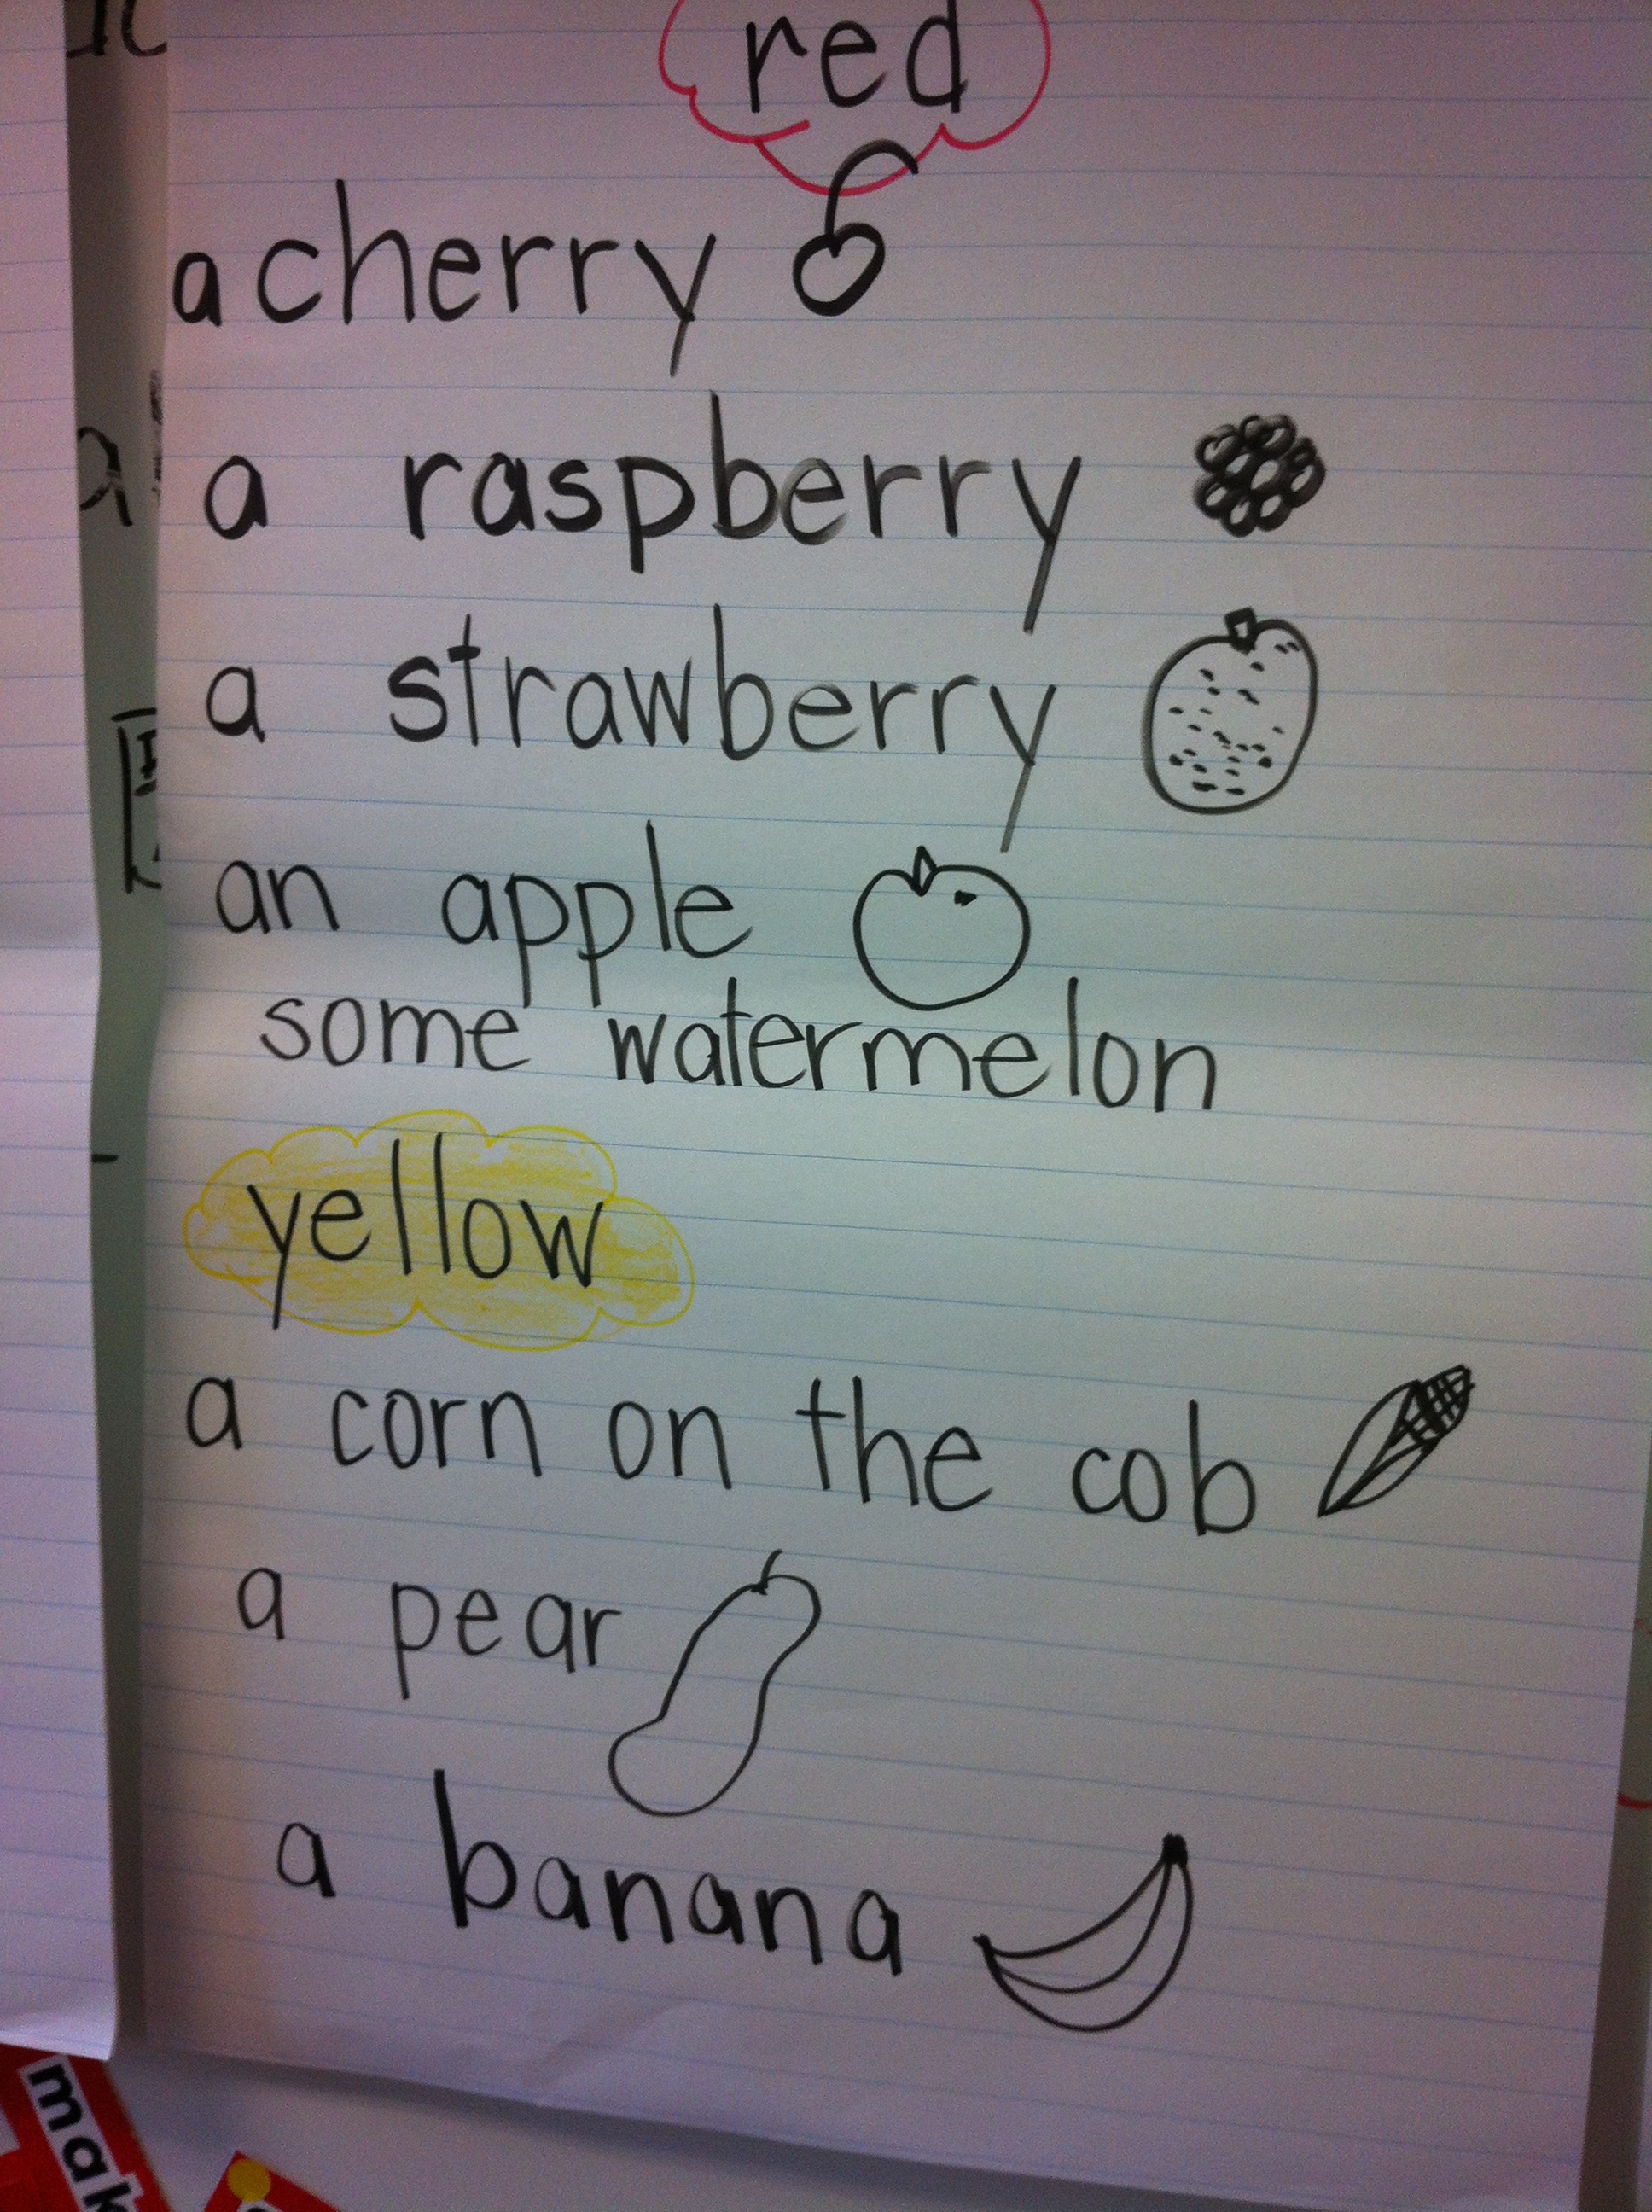 red
a cherry
a raspberry
a strawberry
an apple
some watermelon
yellow
a corn on the cob
a pear
a banana
mak